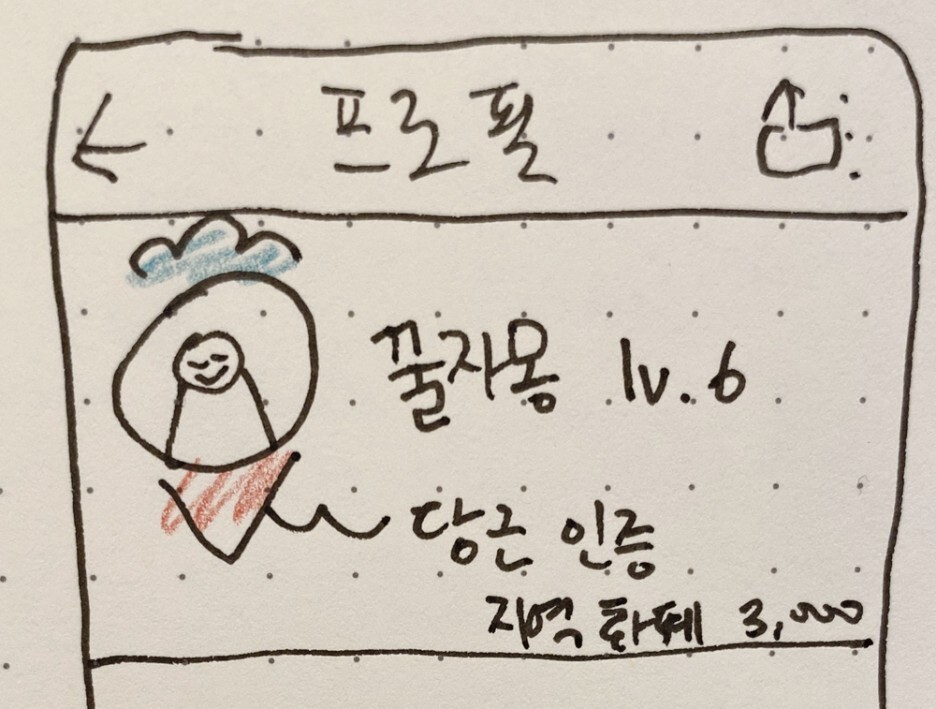 프로필
꿀자몽 lv.6
당근 인증
지역 화폐 3,000